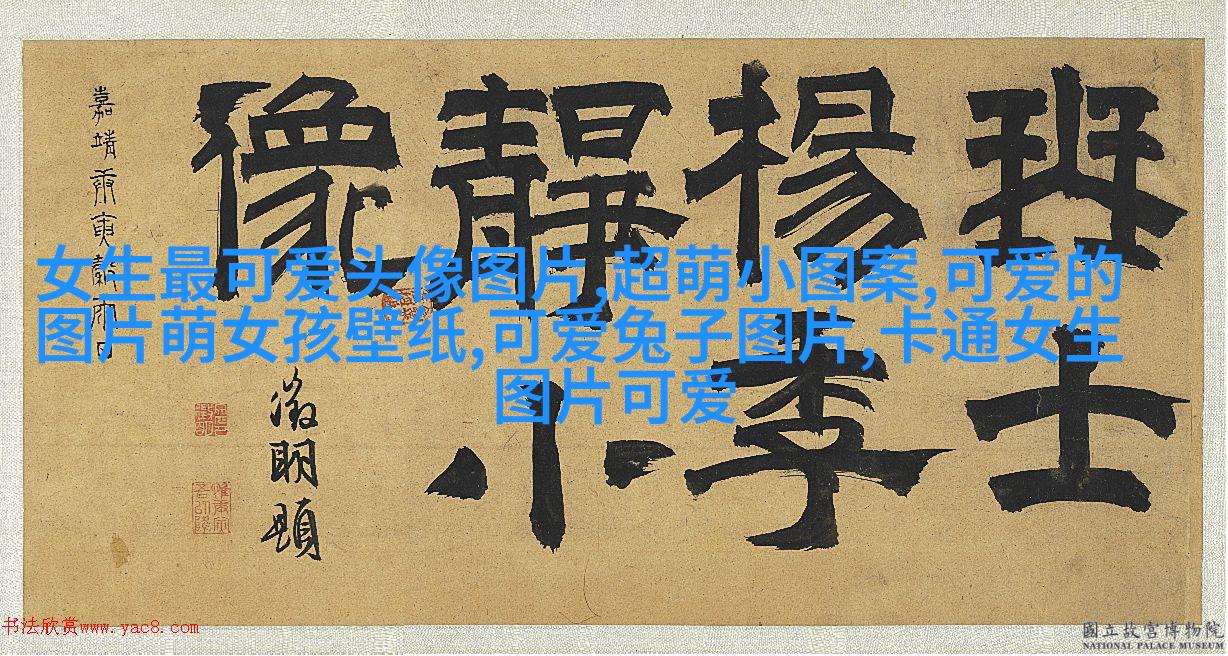 琴士
楊季
靜小
像
嘉靖庚寅穀雨日
徵明題
女生最可爱头像图片,超萌小图案,可爱的
图片萌女孩壁纸,可爱兔子图片,卡通女生
图片可爱
书法欣赏www.yac8.com
國立故宮博物院
NATIONAL PALACE MUSEUM